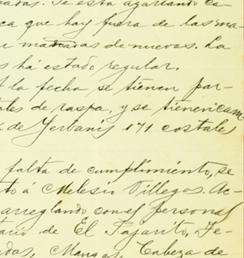 zadas. Se está agarrando ca-
ca que hay fuera de las ma-
madas de nuevos. La
s há estado regular.
A la fecha se tienen par-
adas de raspa, y se tienen cam
de Yerbanis 171 costales
falta de cumplimiento, se
tó á Melesio Villegas. Ac-
arreglando con el personal
tario de El Tajanto, Te-
das, Mangas, Cabeza de